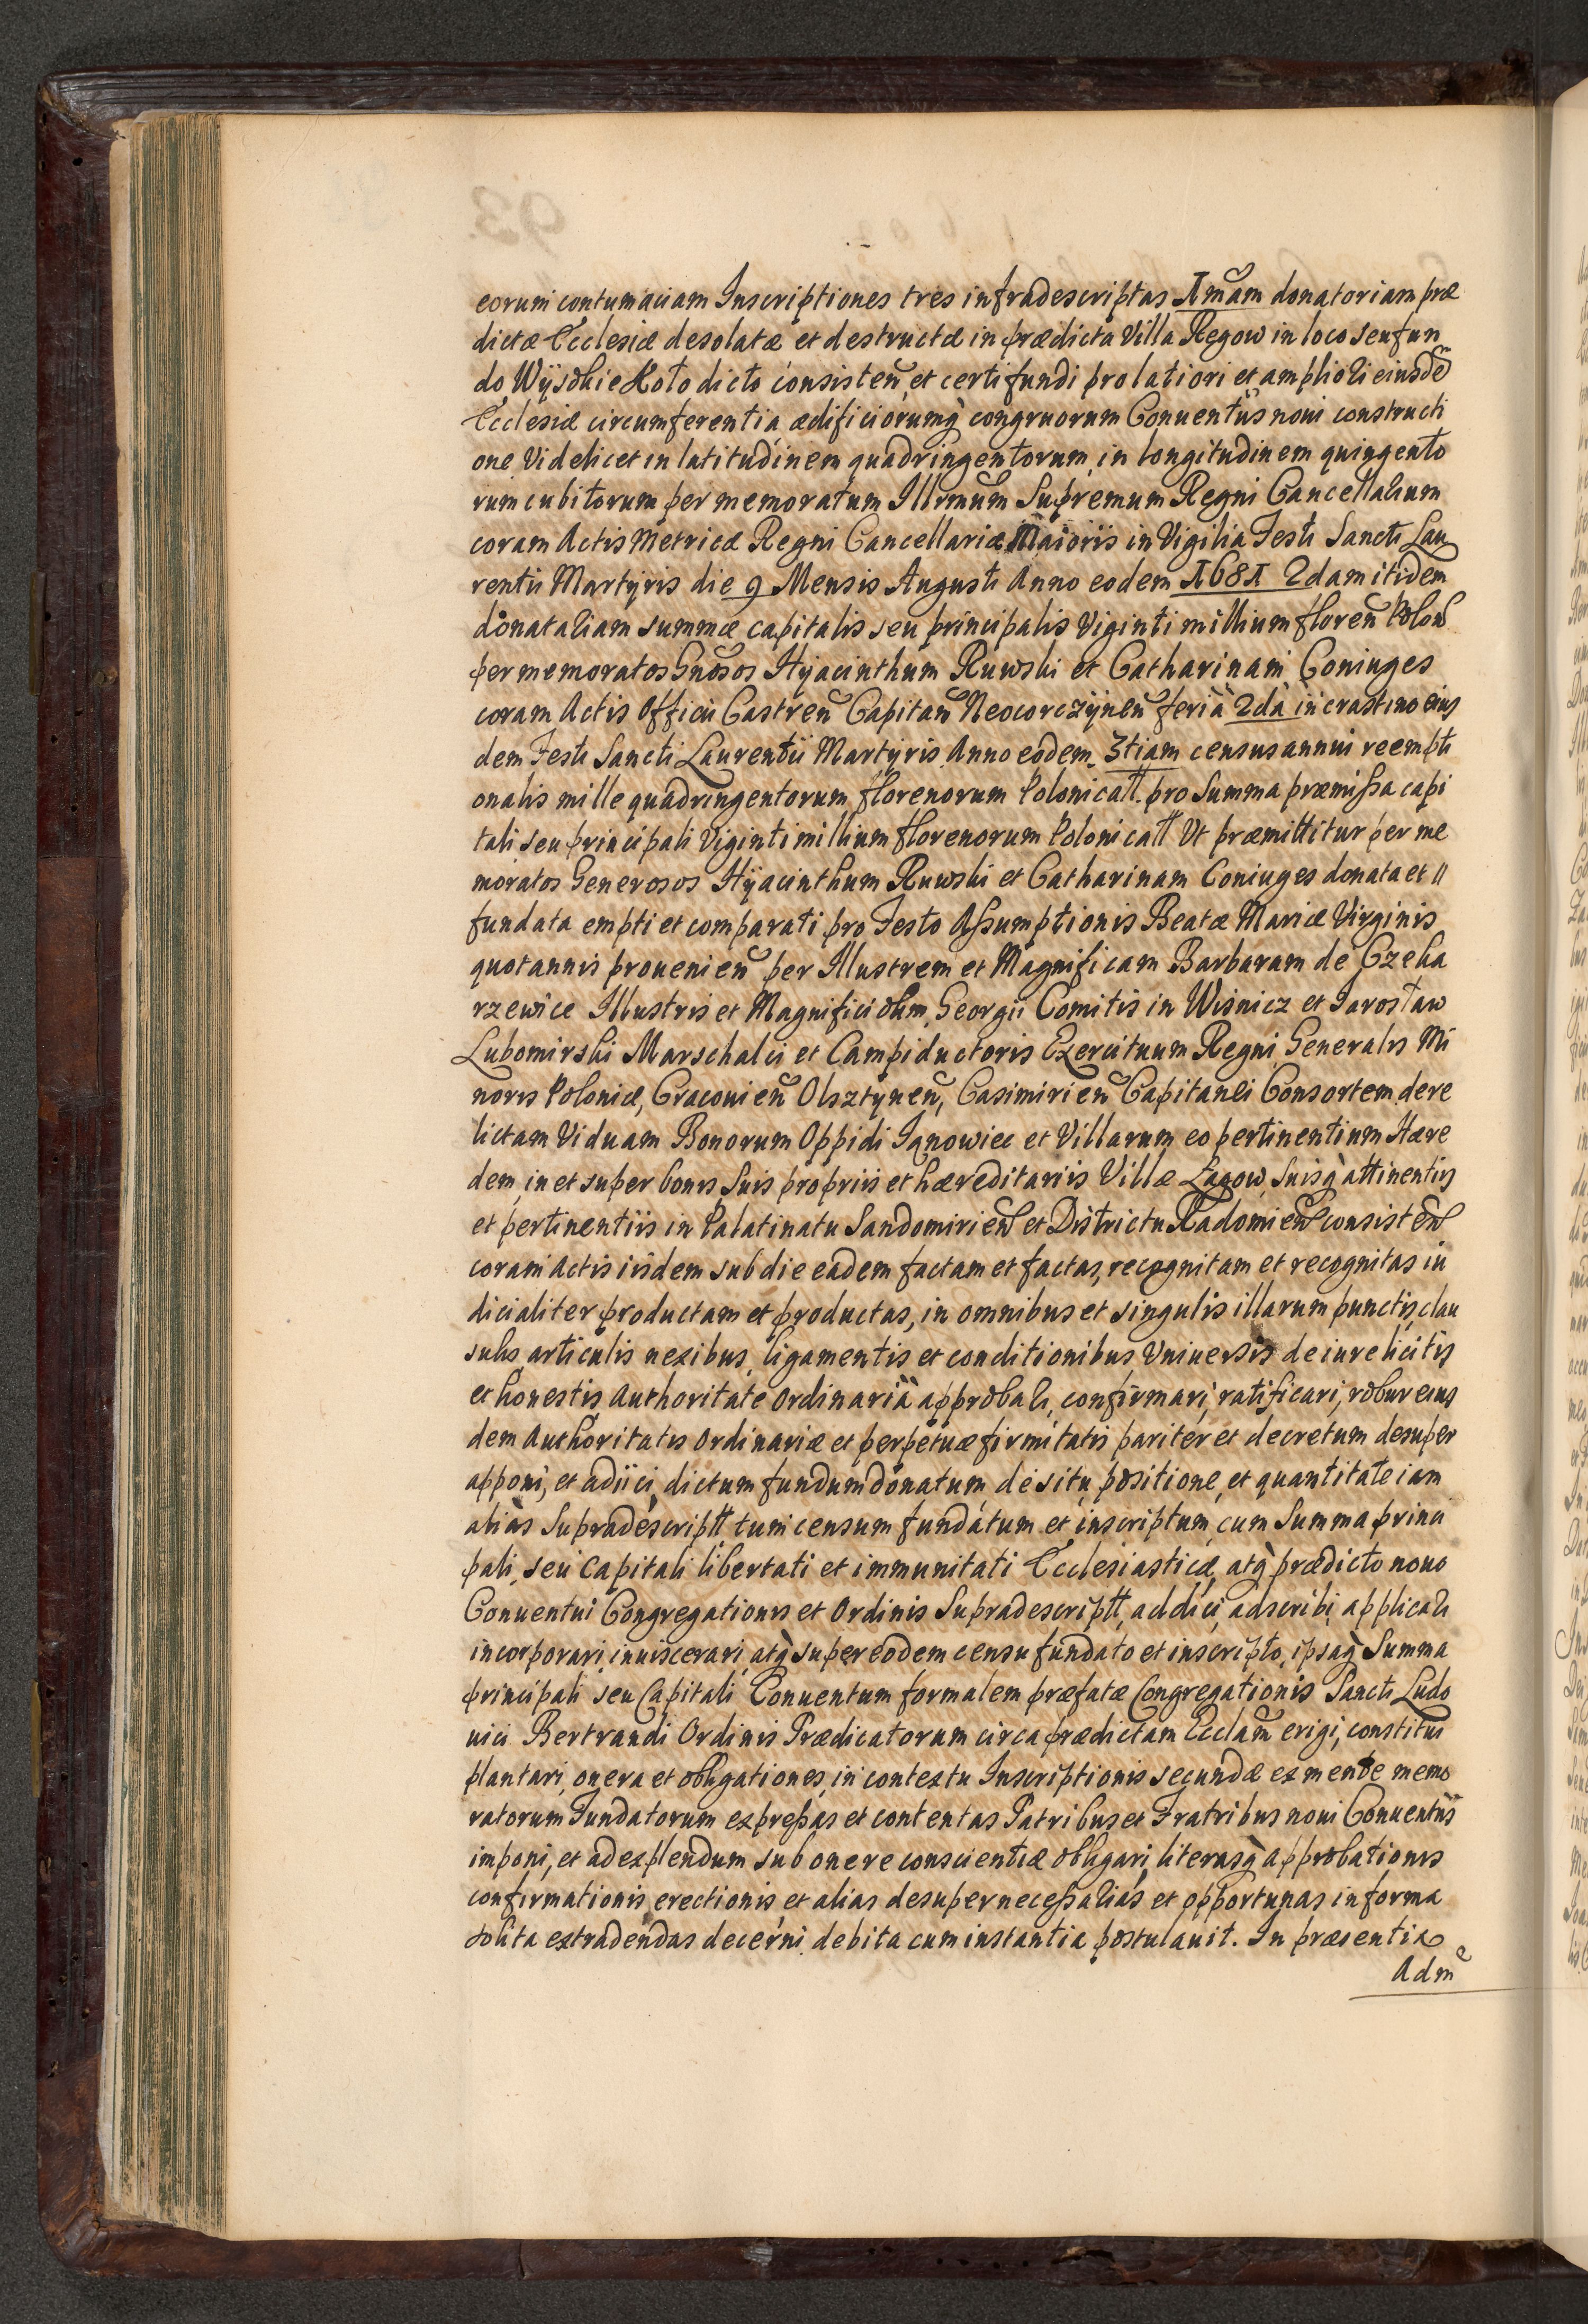 eorum contumaciam Inscriptiones tres infradescriptas 1mam donatoriam præ
dictæ Ecclesiæ desolatæ et destructæ in prædicta Villa Regow in loco seu fun
do Wysokie Koło dicto consisteñ et certi fundi pro latiori et ampliori eiusdē
Ecclesiæ circumferentia ædificiorumq̀ congruorum Conuentûs noui constructi
one Videlicet in latitudinem quadringentorum, in longitudinem quingento
rum cubitorum per memoratum Illrmum Supremum Regni Cancellarium
coram Actis Metricæ Regni Cancellariæ Maioris in Vigilia Festi Sancti Lau
rentii Martyris die 9 Mensis Augusti Anno eodem 1681 2dam itidem
donatariam summæ capitalis seu principalis Viginti millium floreñ Poloñ
per memoratos Gnosos Hyacinthum Ruwski et Catharinam Coniuges
coram Actis Officii Castreñ Capitañ Neocorczyneñ feriâ 2dâ in crastino eius
dem Festi Sancti Laurentii Martyris Anno eodem. 3tiam census annui reempti
onalis mille quadringentorum florenorum Polonicall. pro Summa præmissa capi
tali seu principali Viginti millium florenorum Polonicall Vt præmittitur per me
moratos Generosos Hyacinthum Ruwski et Catharinam Coniuges donata et //
fundata empti et comparati pro Festo Assumptionis Beatæ Mariæ Virginis
quotannis prouenieñ per Illustrem et Magnificam Barbaram de Czeka
rzewice Illustris et Magnifici olim Georgii Comitis in Wisnicz et Jarosław
Lubomirski Marschalci et Campiductoris Exercituum Regni Generalis Mi
noris Poloniæ, Cracouieñ Olsztyneñ, Casimirieñ Capitanei Consortem dere
lictam Viduam Bonorum Oppidi Janowiec et Villarum eo pertinentium Hære
dem, in et super bonis Suis propriis et hæreditariis Villæ Łagow, Suisq̀ attinentiis
et pertinentiis in Palatinatu Sandomirieñ et Districtu Radomieñ consisteñ
coram Actis iisdem sub die eadem factam et factas, recognitam et recognitas iu
dicialiter productam et productas, in omnibus et singulis illarum punctis, clau
sulis, articulis nexibus, ligamentis et conditionibus Vniuersis de iure licitis
et honestis Authoritate Ordinariâ approbari, confirmari, ratificari, robur eius
dem Authoritatis Ordinariæ et perpetuæ firmitatis pariter et decretum desuper
apponi, et adiici, dictum fundum donatum de situ, positione, et quantitate iam
alias Supradescriptt tum censum fundatum et inscriptum, cum Summa princi
pali, seu Capitali libertati et immunitati Ecclesiasticæ, atq̀ prædicto nouo
Conuentui Congregationis et Ordinis Supradescriptt, addici, adscribi, applicari
incorporari, inuiscerari, atq̀ super eodem censu fundato et inscripto, ipsaq̀ Summa
principali seu Capitali Conuentum formalem præfatæ Congregationis Sancti Ludo
uici Bertrandi Ordinis Prædicatorum circa prædictam Ecclam̃ erigi, constitui
plantari, onera et obligationes, in contextu Inscriptionis secundæ ex mente memo
ratorum Fundatorum expressas et contentas Patribus et Fratribus noui Conuentûs
imponi, et ad explendum sub onere conscientiæ obligari, literasq̀ approbationis
confirmationis erectionis, et alias desuper necessarias et opportunas in forma
solita extradendas decerni debita cum instantia postulauit. In præsentia
Adme